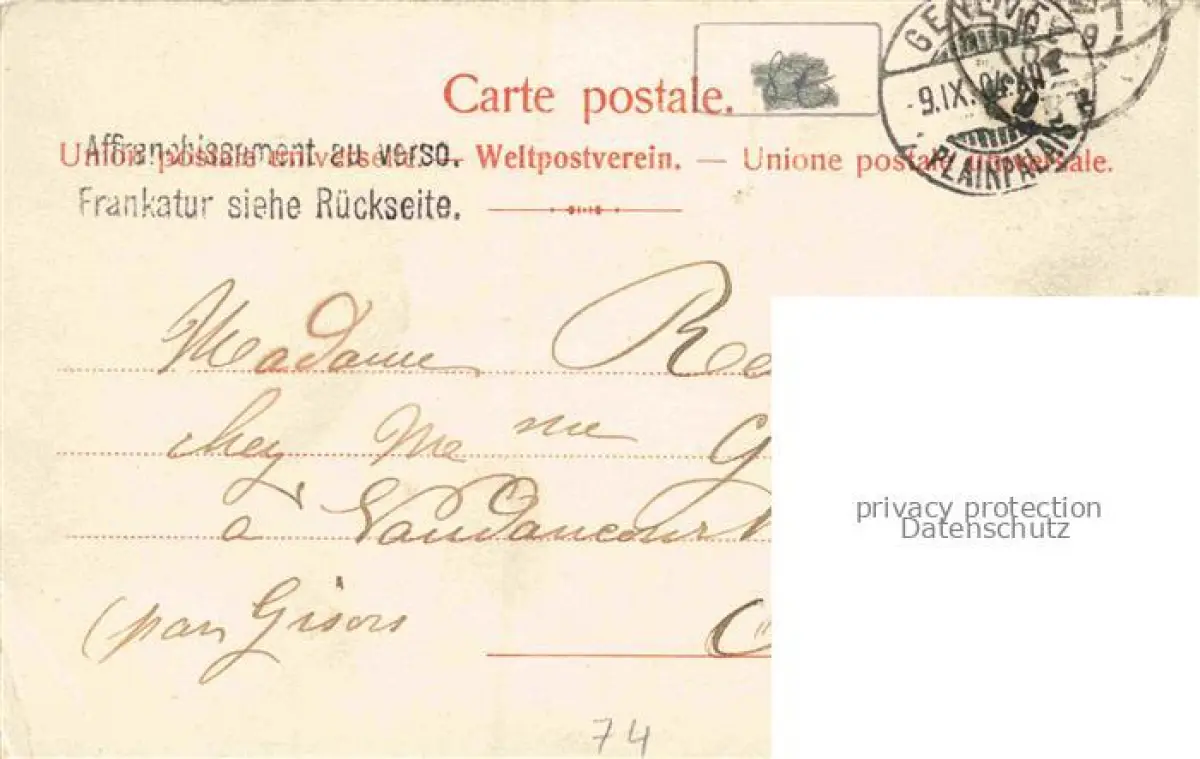 Carte postale.
Union postale universelle. — Weltpostverein. — Unione postale universale.
Affranchissement au verso.
Frankatur siehe Rückseite.
GENÈVE
9.IX.04
PLAINPALAIS
Madame Re
chez Me me G
à Vaudancourt
(par Gisors
74
privacy protection
Datenschutz